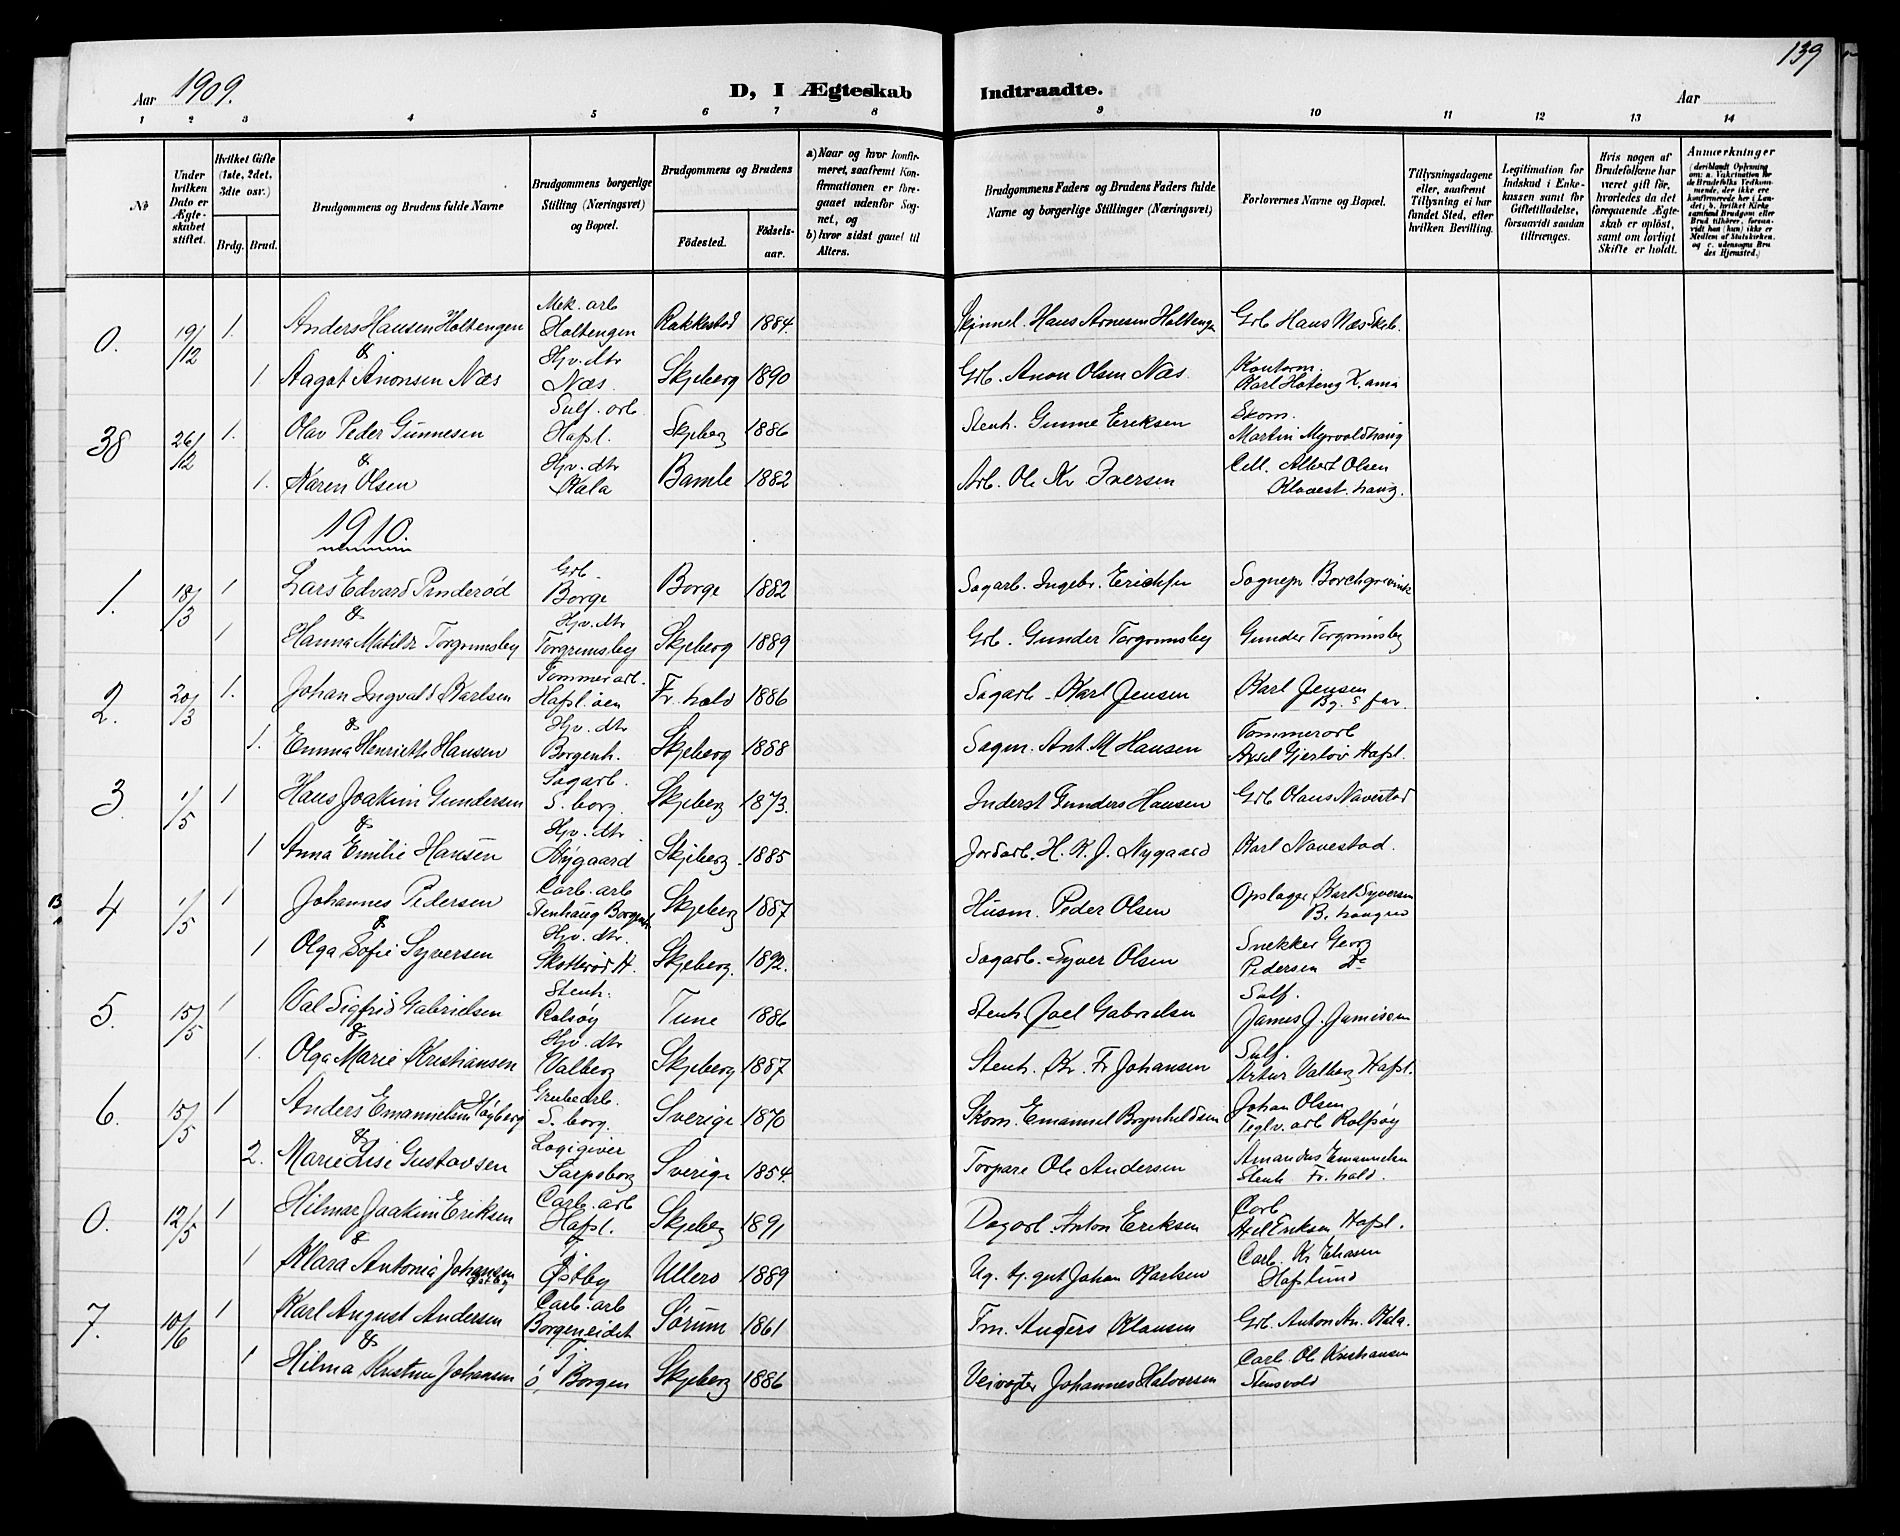 139
Aar 1909.
D, I Ægteskab Indtraadte.
Aar
1 2 3 4 5 6 7 8 9 10 11 12 13 14
No
Under hvilken Dato er Ægteskabet stiftet.
Hvilket Gifte (1ste, 2det, 3die osv.)
Brdg. Brud.
Brudgommens og Brudens fulde Navne
Brudgommens borgerlige Stilling (Næringsvei) og Bopæl.
Brudgommens og Brudens
Fødested. Fødselsaar.
a) Naar og hvor konfirmeret, saafremt Konfirmationen er foregaaet udenfor Sognet, og
b) hvor sidst gaaet til Alters.
Brudgommens Faders og Brudens Faders fulde Navne og borgerlige Stillinger (Næringsvei)
Forlovernes Navne og Bopæl.
Tillysningsdagene eller, saafremt Tillysning ei har fundet Sted, efter hvilken Bevilling.
Legitimation for Indskud i Enkekassen samt for Giftetilladelse, forsaavidt saadan tiltrænges.
Hvis nogen af Brudefolkene har været gift før, hvorledes da det foregaaende Ægteskab er opløst, samt om lovligt Skifte er holdt.
Anmærkninger
0. 19/12 1. Anders Hansen Holtengen Mek. arb Holtengen Rakkestad 1884. Skjønnel. Hans Arnesen Holtengen Grb Hans Næs Skeb.
&
1 Aagot Anonsen Næs Hjv. dtr Næs. Skjeberg 1890 Grb. Anon Olsen Næs. Kontorm. Karl Hateng X.ania
38 26/12 1. Olav Peder Gunnesen Sulf. arb. Hafsl. Skjeberg 1886 Stenh. Gunne Eriksen Skom. Martin Myrvoldhaug
&
1. Karen Olsen Hjv. dtr Kala Bamle 1882 Arb. Ole Kr. Iversen Cell. Albert Olsen Klavest. haug.
1910.
1. 18/3 1 Lars Edvard Pinderød Grb. Borge Borge 1882 Sagarb. Ingebr. Erichsen Sognepr Borchgrevink
&
1 Hanna Matilde Torgrimsby Hjv. dtr Torgrimsby Skjeberg 1889 Grb. Gunder Torgrimsby Gunder Torgrimsby
2. 20/3 1. Johan Ingvald Karlsen Tommerarb. Hafsl. øen Fr. hald 1886 Sagarb. Karl Jensen Karl Jensen Bg. s far.
&
1. Emma Henriette Hansen Hjv. dtr Borgenh. Skjeberg 1888 Sagm. Ant. M Hansen Tommerarb Axsel Gjerløv Hafsl.
3. 1/5 1 Hans Joakim Gundersen Sagarb. S. borg. Skjeberg 1873. Inderst Gunders Hansen Grb Olaus Navestad
&
1 Anna Emilie Hansen Hjv. dtr Nygaard Skjeberg 1885 Jordarb. H. K. J. Nygaard Karl Navestad.
4 1/5 1 Johannes Pedersen Carb. arb Stenhaug Borgenh. Skjeberg 1887 Husm. Peder Olsen Opslager Karl Syversen B. haugen
&
1 Olga Sofie Syversen Hjv. dtr. Skotterød H. Skjeberg. 1892. Sagarb. Syver Olsen Snekker Georg Pedersen Do
5. 15/5 1 Val Sigfrid Gabrielsen Stenh. Rolsøy Tune 1886 Stenh Joel Gabrielsen Sulf. James J. Jamissen
&
1. Olga Marie Kristiansen Hjv. dtr Valberg Skjeberg 1887 Stenh. Kr. Fr Johansen Sulf. Artur Valberg Hafsl.
6. 15/5 1 Anders Emanuelsen Høyberg Grubearb. S. borg. Sverige 1870 Skom. Emanuel Brynheldsen Johan Olsen Teglv. arb Rolfsøy
&
2. Marie Lise Gustavsen Logigiver Sarpsborg Sverige 1854. Torpare Ole Andersen Amandus Emanuelsen Stenh Fr. hald.
0. 12/5 1 Hilmar Joakim Eriksen Carb. arb Hafsl. Skjeberg 1891 Dagarb. Anton Eriksen Carb Axel Eriksen Hafsl.
&
1 Klara Antonia Johansen Østby Østby Ullerø 1889 Ug. tj. gut Johan Karlsen Carb. Kr Eliasen Hafslund
7. 10/6 1 Karl August Andersen Carb. arb Borgeneidet Sørum 1861 Fm. Anders Klausen Grb. Anton An. Kala.
&
1 Hilma Kristine Johansen Tj. ø, Borgen Skjeberg 1886 Veivogter Johannes Halvorsen Carb. Ole Kristiansen Stensvold